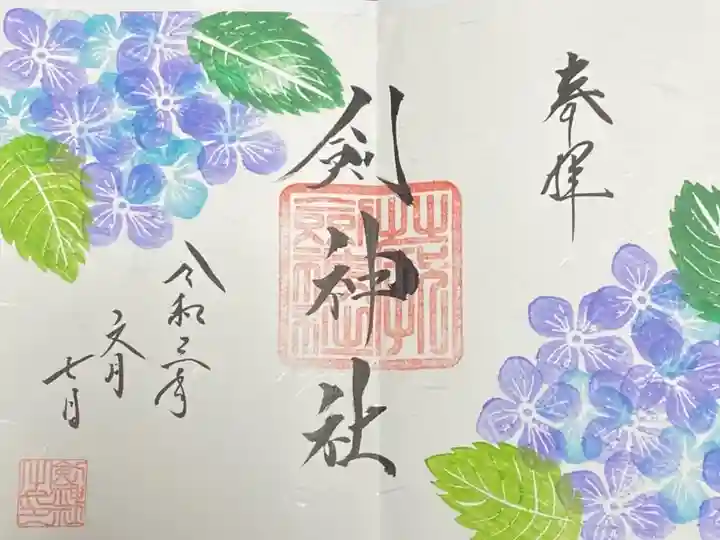 奉拝
剣神社
令和三年
文月
七日